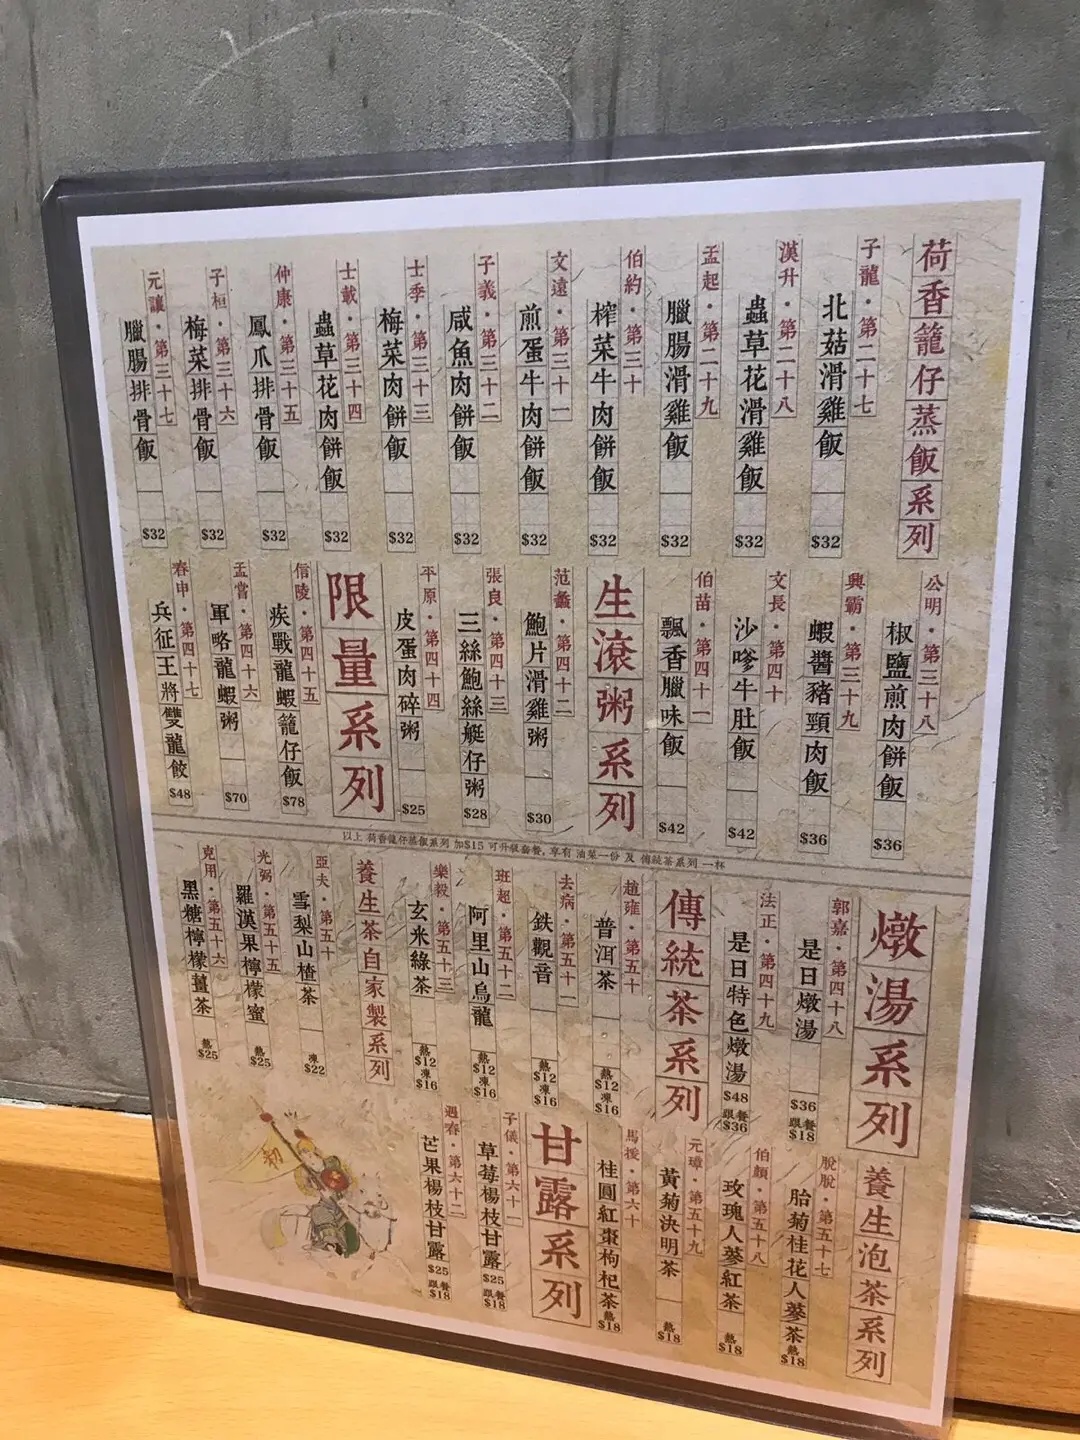 荷香籠仔蒸飯系列
子龍・第二十七
北菇滑雞飯
$32
漢升・第二十八
蟲草花滑雞飯
$32
孟起・第二十九
臘腸滑雞飯
$32
伯約・第三十
榨菜牛肉餅飯
$32
文遠・第三十一
煎蛋牛肉餅飯
$32
子義・第三十二
咸魚肉餅飯
$32
士季・第三十三
梅菜肉餅飯
$32
士載・第三十四
蟲草花肉餅飯
$32
仲康・第三十五
鳳爪排骨飯
$32
子桓・第三十六
梅菜排骨飯
$32
元讓・第三十七
臘腸排骨飯
$32
公明・第三十八
椒鹽煎肉餅飯
$36
興霸・第三十九
蝦醬豬頸肉飯
$36
文長・第四十
沙嗲牛肚飯
$42
伯苗・第四十一
飄香臘味飯
$42
生滾粥系列
范蠡・第四十二
鮑片滑雞粥
$30
張良・第四十三
三絲鮑絲艇仔粥
$28
平原・第四十四
皮蛋肉碎粥
$25
限量系列
信陵・第四十五
疾戰龍蝦籠仔飯
$78
孟嘗・第四十六
軍略龍蝦粥
$70
春申・第四十七
兵征王將雙龍餃
$48
以上 荷香籠仔蒸飯系列 加$15 可升級套餐, 享有 油菜一份 及 傳統茶系列 一杯
燉湯系列
郭嘉・第四十八
是日燉湯
$36
跟餐
$18
法正・第四十九
是日特色燉湯
$48
跟餐
$36
傳統茶系列
趙雍・第五十
普洱茶
熱
$12
凍
$16
去病・第五十一
鉄觀音
熱
$12
凍
$16
班超・第五十二
阿里山烏龍
熱
$12
凍
$16
樂毅・第五十三
玄米綠茶
熱
$12
凍
$16
養生茶自家製系列
亞夫・第五十
雪梨山楂茶
凍
$22
光弼・第五十五
羅漢果檸檬蜜
熱
$25
克用・第五十六
黑糖檸檬薑茶
熱
$25
養生泡茶系列
脫脫・第五十七
胎菊桂花人蔘茶
熱
$18
伯顏・第五十八
玫瑰人蔘紅茶
熱
$18
元璋・第五十九
黃菊決明茶
熱
$18
馬援・第六十
桂圓紅棗枸杞茶
熱
$18
甘露系列
子儀・第六十一
草莓楊枝甘露
$25
跟餐
$18
遇春・第六十二
芒果楊枝甘露
$25
跟餐
$18